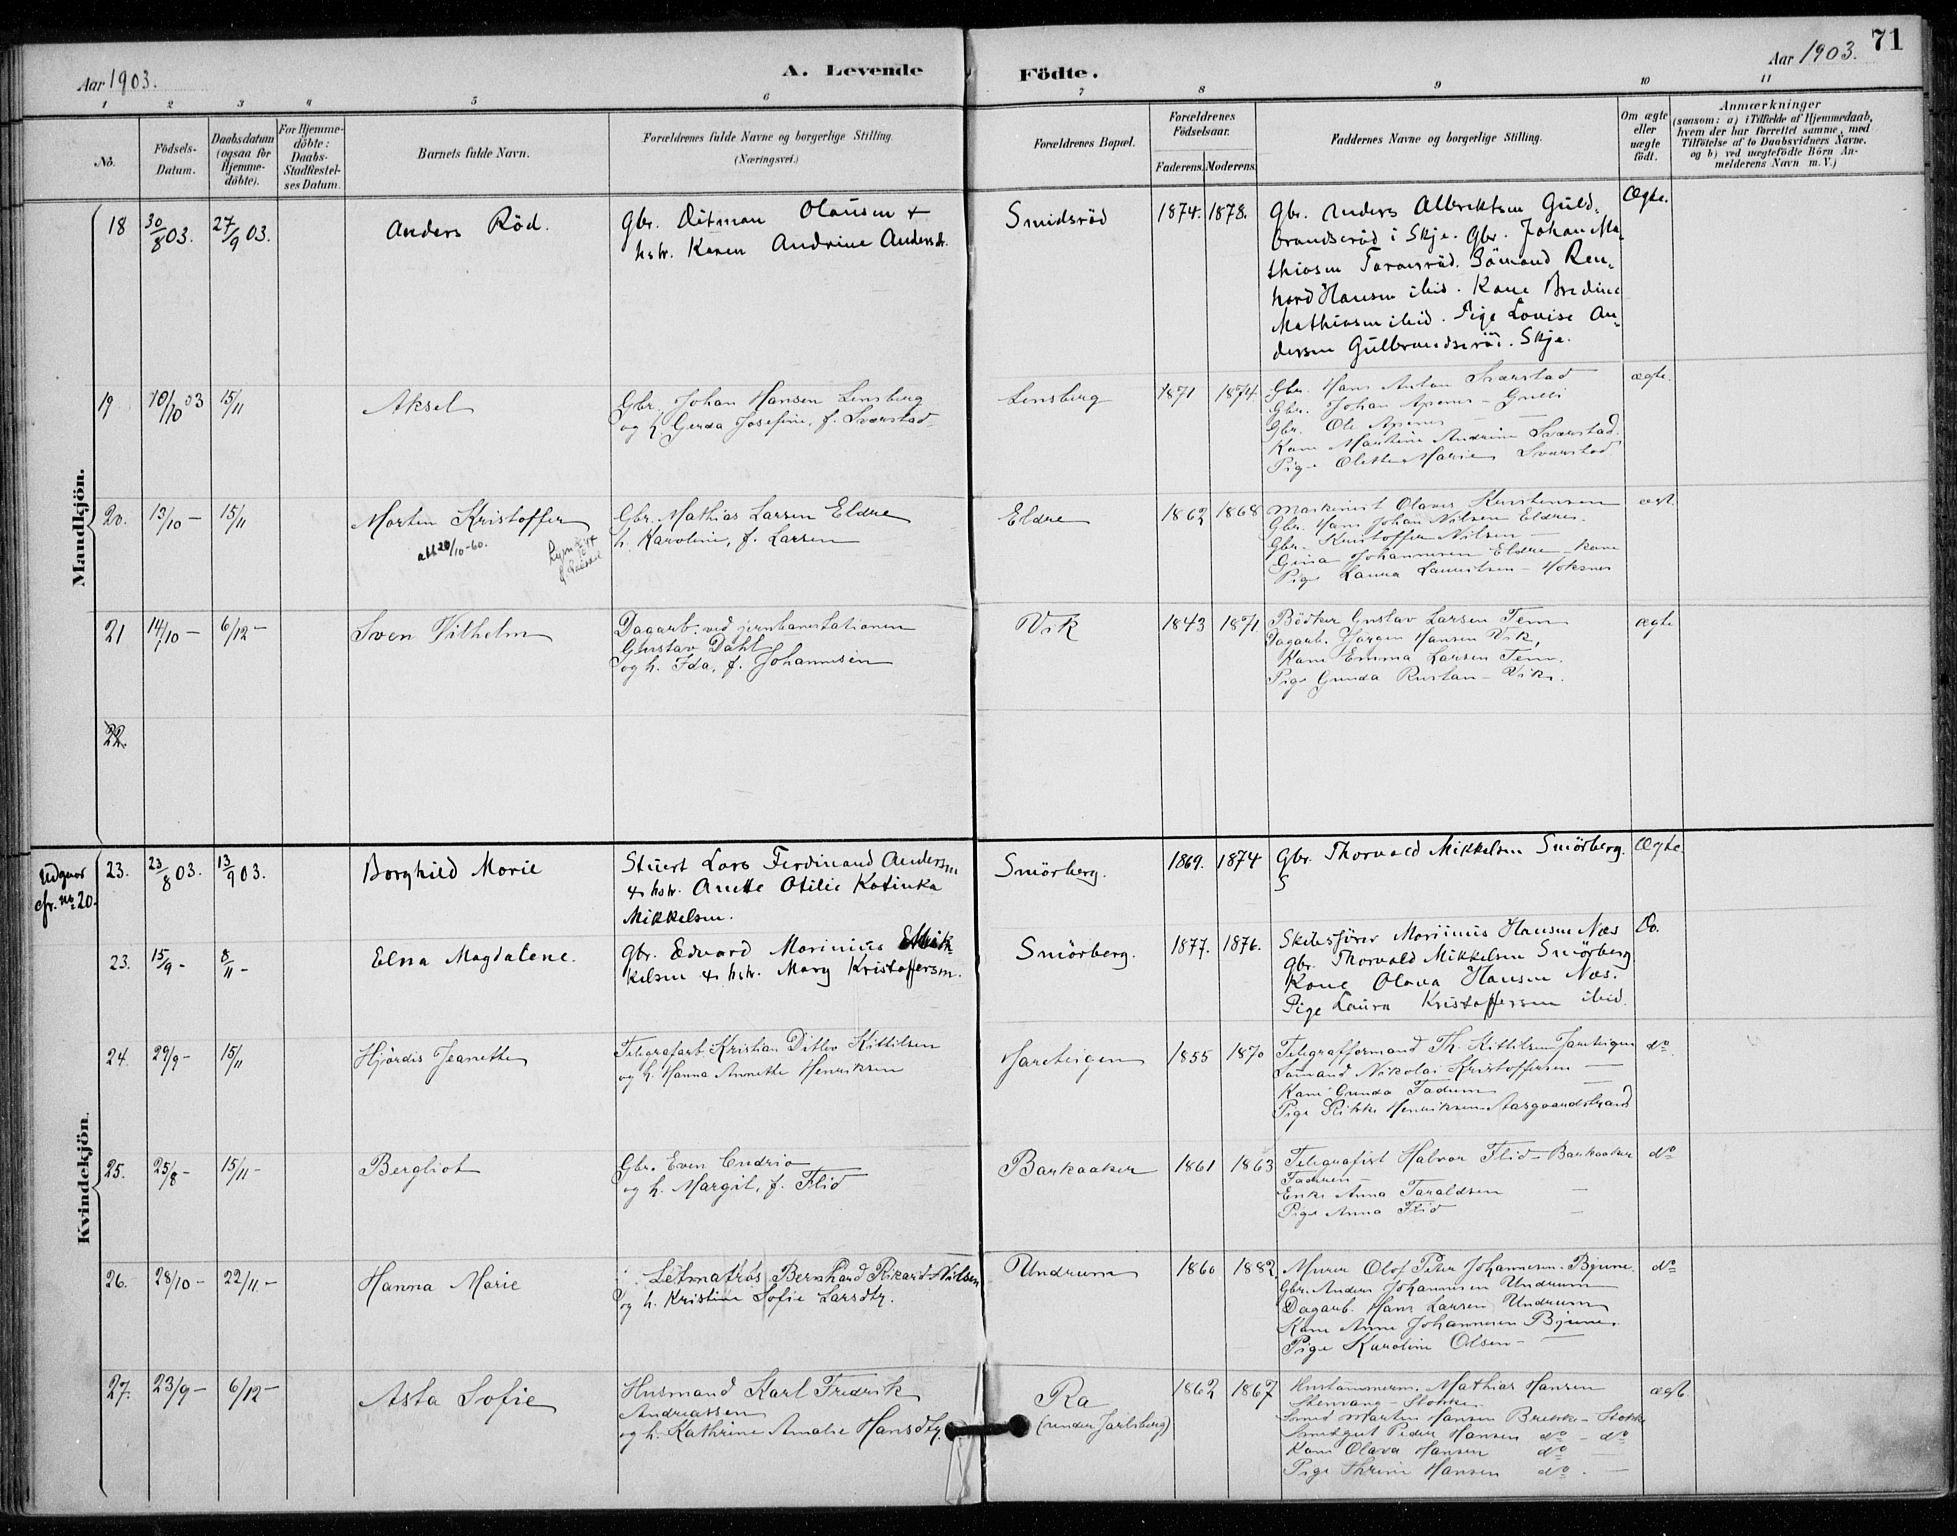 71
Aar 1903.
A. Levende
Födte.
Aar 1903.
1 2 3 4 5 6 7 8 9 10 11
No.
Födsels-
Datum.
Daabsdatum
(ogsaa för
Hjemme-
döbte).
For Hjemme-
döbte:
Daabs-
Stadfæstel-
ses Datum.
Barnets fulde Navn.
Forældrenes fulde Navne og borgerlige Stilling.
(Næringsvei.)
Forældrenes Bopæl.
Forældrenes
Födselsaar.
Faderens. Moderens.
Faddernes Navne og borgerlige Stilling.
Om ægte
eller
uægte
födt.
Anmærkninger
(saasom: a) i Tilfælde af Hjemmedaab,
hvem der har forrettet samme, med
Tilföielse af to Daabsvidners Navne,
og b) ved uægtefödte Börn An-
melderens Navn m. V.)
Mandkjön.
18 30/8 03. 27/9 03.
Anders Röd.
Gbr. Ditman Olausen &
hstr. Karen Andrine Andersdr.
Smidsröd
1874. 1878.
Gbr. Anders Albriktsen Guld-
brandseröd i Skje. Gbr. Johan Ma-
thiasen Taranröd. Sömand Ren-
hard Hansen ibid. Kone Bredine
Mathiasen ibid. Pige Lovise An-
dersen Gulbrandseröd. Skje.
Ægte.
19 10/10 03 15/11
Aksel
Gbr. Johan Hansen Lensberg
og h. Gerda Josefine, f. Svarstad
Lensberg
1871 1874
Gbr. Hans Anton Svarstad
Gbr. Johan Apenes - Gulli
Gbr. Ole Apenes
Kone Martine Andrine Svarstad.
Pige Olette Marie Svarstad
ægte.
20. 13/10 - 15/11
Morten Kristoffer
20/10-60.
Gbr. Mathias Larsen Eldre
h. Karoline, f. Larsen
Eldre
1862 1868
Maskinist Olaves Kristensen
Gbr. Hans Johan Nilsen Eldre.
Gbr. Kristoffer Nilsen -
Gina Johannesen Eldre - kone
Pige Laura Lauritsen - Hoksnes
ægt.
21 14/10 - 6/12 -
Sven Vilhelm
Dagarb. ved jernbanestationen
Gustav Dahl
og h. Ida, f. Johannesen
Vik
1843 1871
Bödker Gustav Larsen Tem
Dagarb. Jörgen Hansen Vik,
Kone Emma Larsen Tem.
Pige Gunda Rustan - Vik.
ægte
22.
Kvindekjön.
Udgaar
cfr. no 20.
23. 23/8 03. 13/9 03.
Borghild Marie
Stuert Lars Ferdinand Andersen
& hstr. Anette Otilie Katinka
Mikkelsen.
Smörberg.
1869. 1874
Gbr. Thorvald Mikkelsen Smörberg.
S
Ægte
23. 15/9 - 8/11 -
Elna Magdalene.
Gbr. Edvard Marinius Mik-
kelsen & hstr. Mary Kristoffersen.
Smörberg.
1877. 1876.
Skibsförer Marinius Hansen Næs
Gbr. Thorvald Mikkelsen Smörberg
Kone Olava Hansen Næs.
Pige Laura Kristoffersen ibid.
Do.
24. 29/9 - 15/11
Hjördis Jeanette
Telegrafarb. Kristian Ditlev Kittilsen
og h. Hanna Annette Henriksen
Jareteigen
1855 1870
Telegrafformand Th. Kittilsen Jareteigen
Sömand Nikolai Kristoffersen -
Kone Gunda Fadum -
Pige Rikke Henriksen Aasgaardstrand
do.
25. 25/8 - 15/11 -
Bergliot
Gbr. Even Endrio
og h. Margit, f. Flid
Barkaaker
1861 1863
Telegrafist Halvor Flid - Barkaaker
Faderen -
Enke Anna Taraldsen -
Pige Anna Flid -
do
26. 28/10 - 22/11 -
Hanna Marie
Letmatros Bernhard Rikard Nielsen
og h. Kristine Sofie Larsdtr.
Undrum
1860 1882
Murer Olof Peter Johannesen. Bjune.
Gbr. Anders Johannesen Undrum
Dagarb. Hans Larsen Undrum
Kone Anne Johannesen Bjune.
Pige Karoline Olsen -
do
27. 23/9 - 6/12 -
Asta Sofie
Husmand Karl Fredrik
Andreassen
og h. Kathrine Amalie Hansdtr.
Ra
(under Jarlsberg)
1862 1867
Hustömmerm. Mathias Hansen
Stenvang - Stokke.
Smed Martin Hansen Brekke - Stokke
Peder Hansen do - do
Kone Olava Hansen do -
Pige Thrine Hansen do. -
ægt.